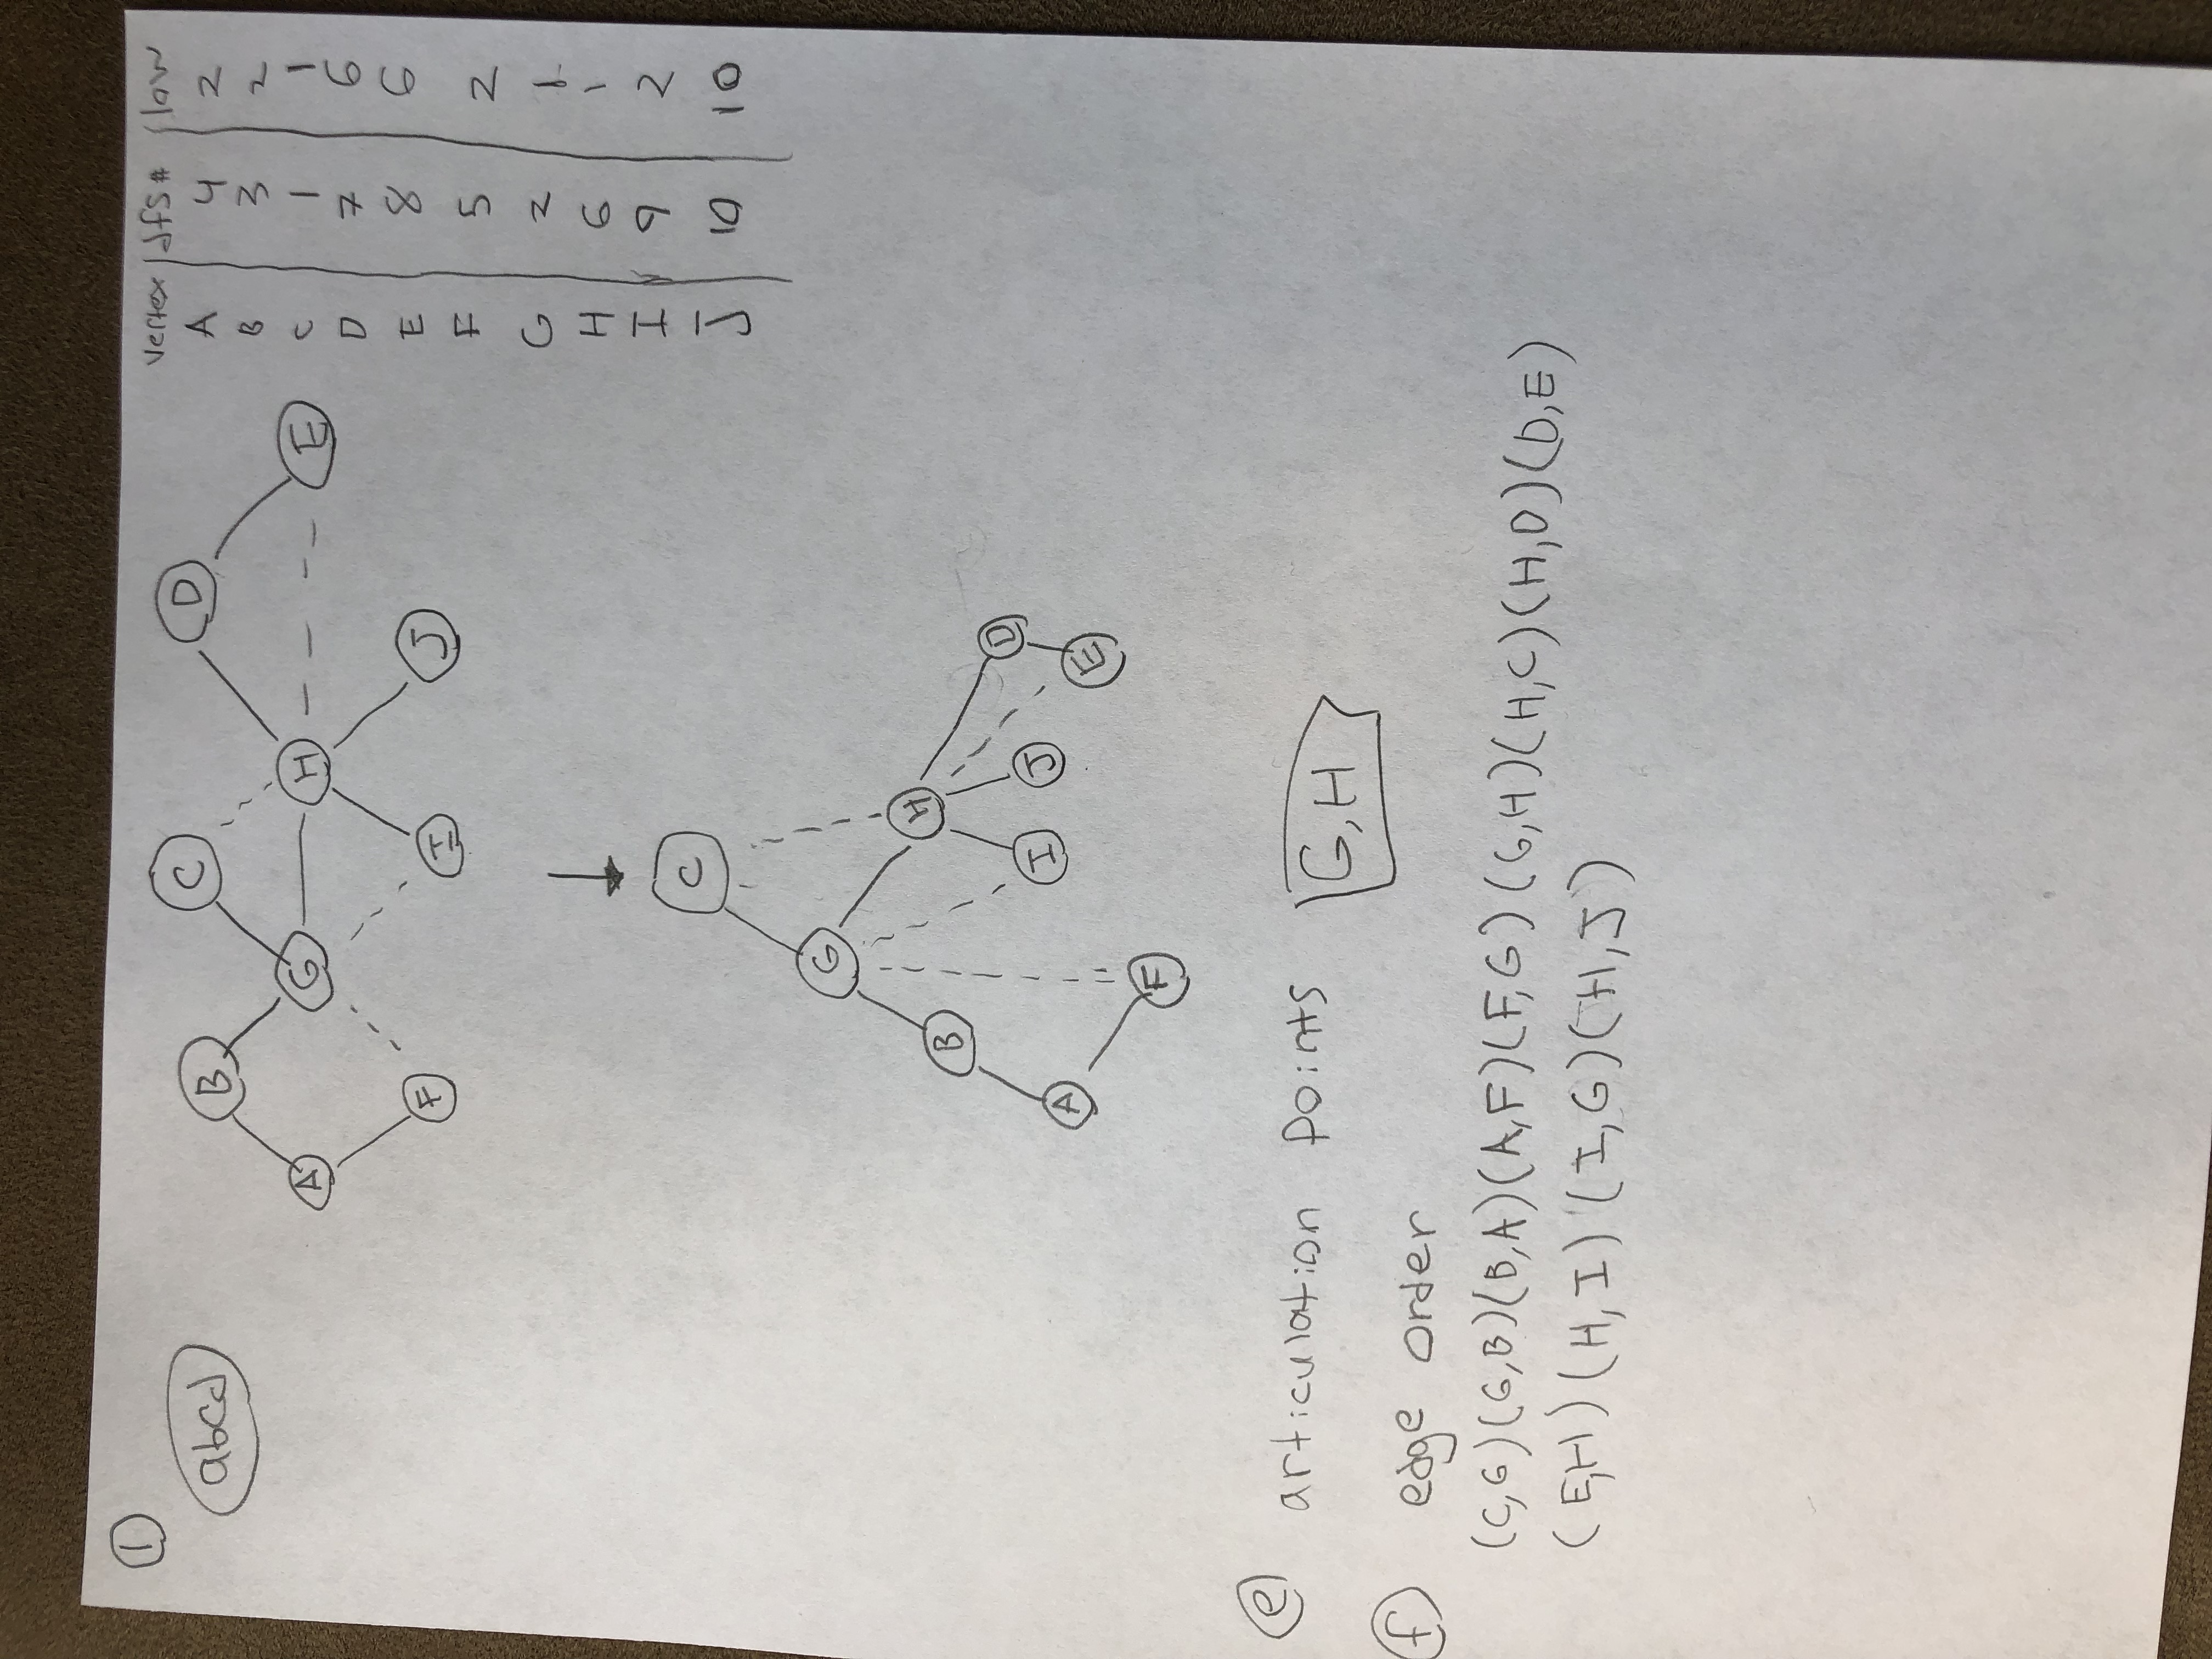 1
abcd
B C D
A G H E
F I J
vertex dfs# low
A 4 2
B 3 2
C 1 1
D 7 6
E 8 6
F 5 2
G 2 1
H 6 1
I 9 2
J 10 10
C
G
H
B
D
I J
A
E
F
e articulation points G,H
f edge order
(C,G)(G,B)(B,A)(A,F)(F,G)(G,H)(H,C)(H,D)(D,E)
(E,H)(H,I)(I,G)(H,J)